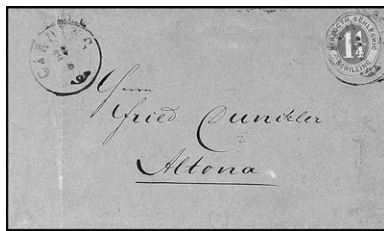 GARDING
HERZOGTH. SCHLESWIG
1¼
SCHILLING
Herrn
Fried Dunckler
Altona